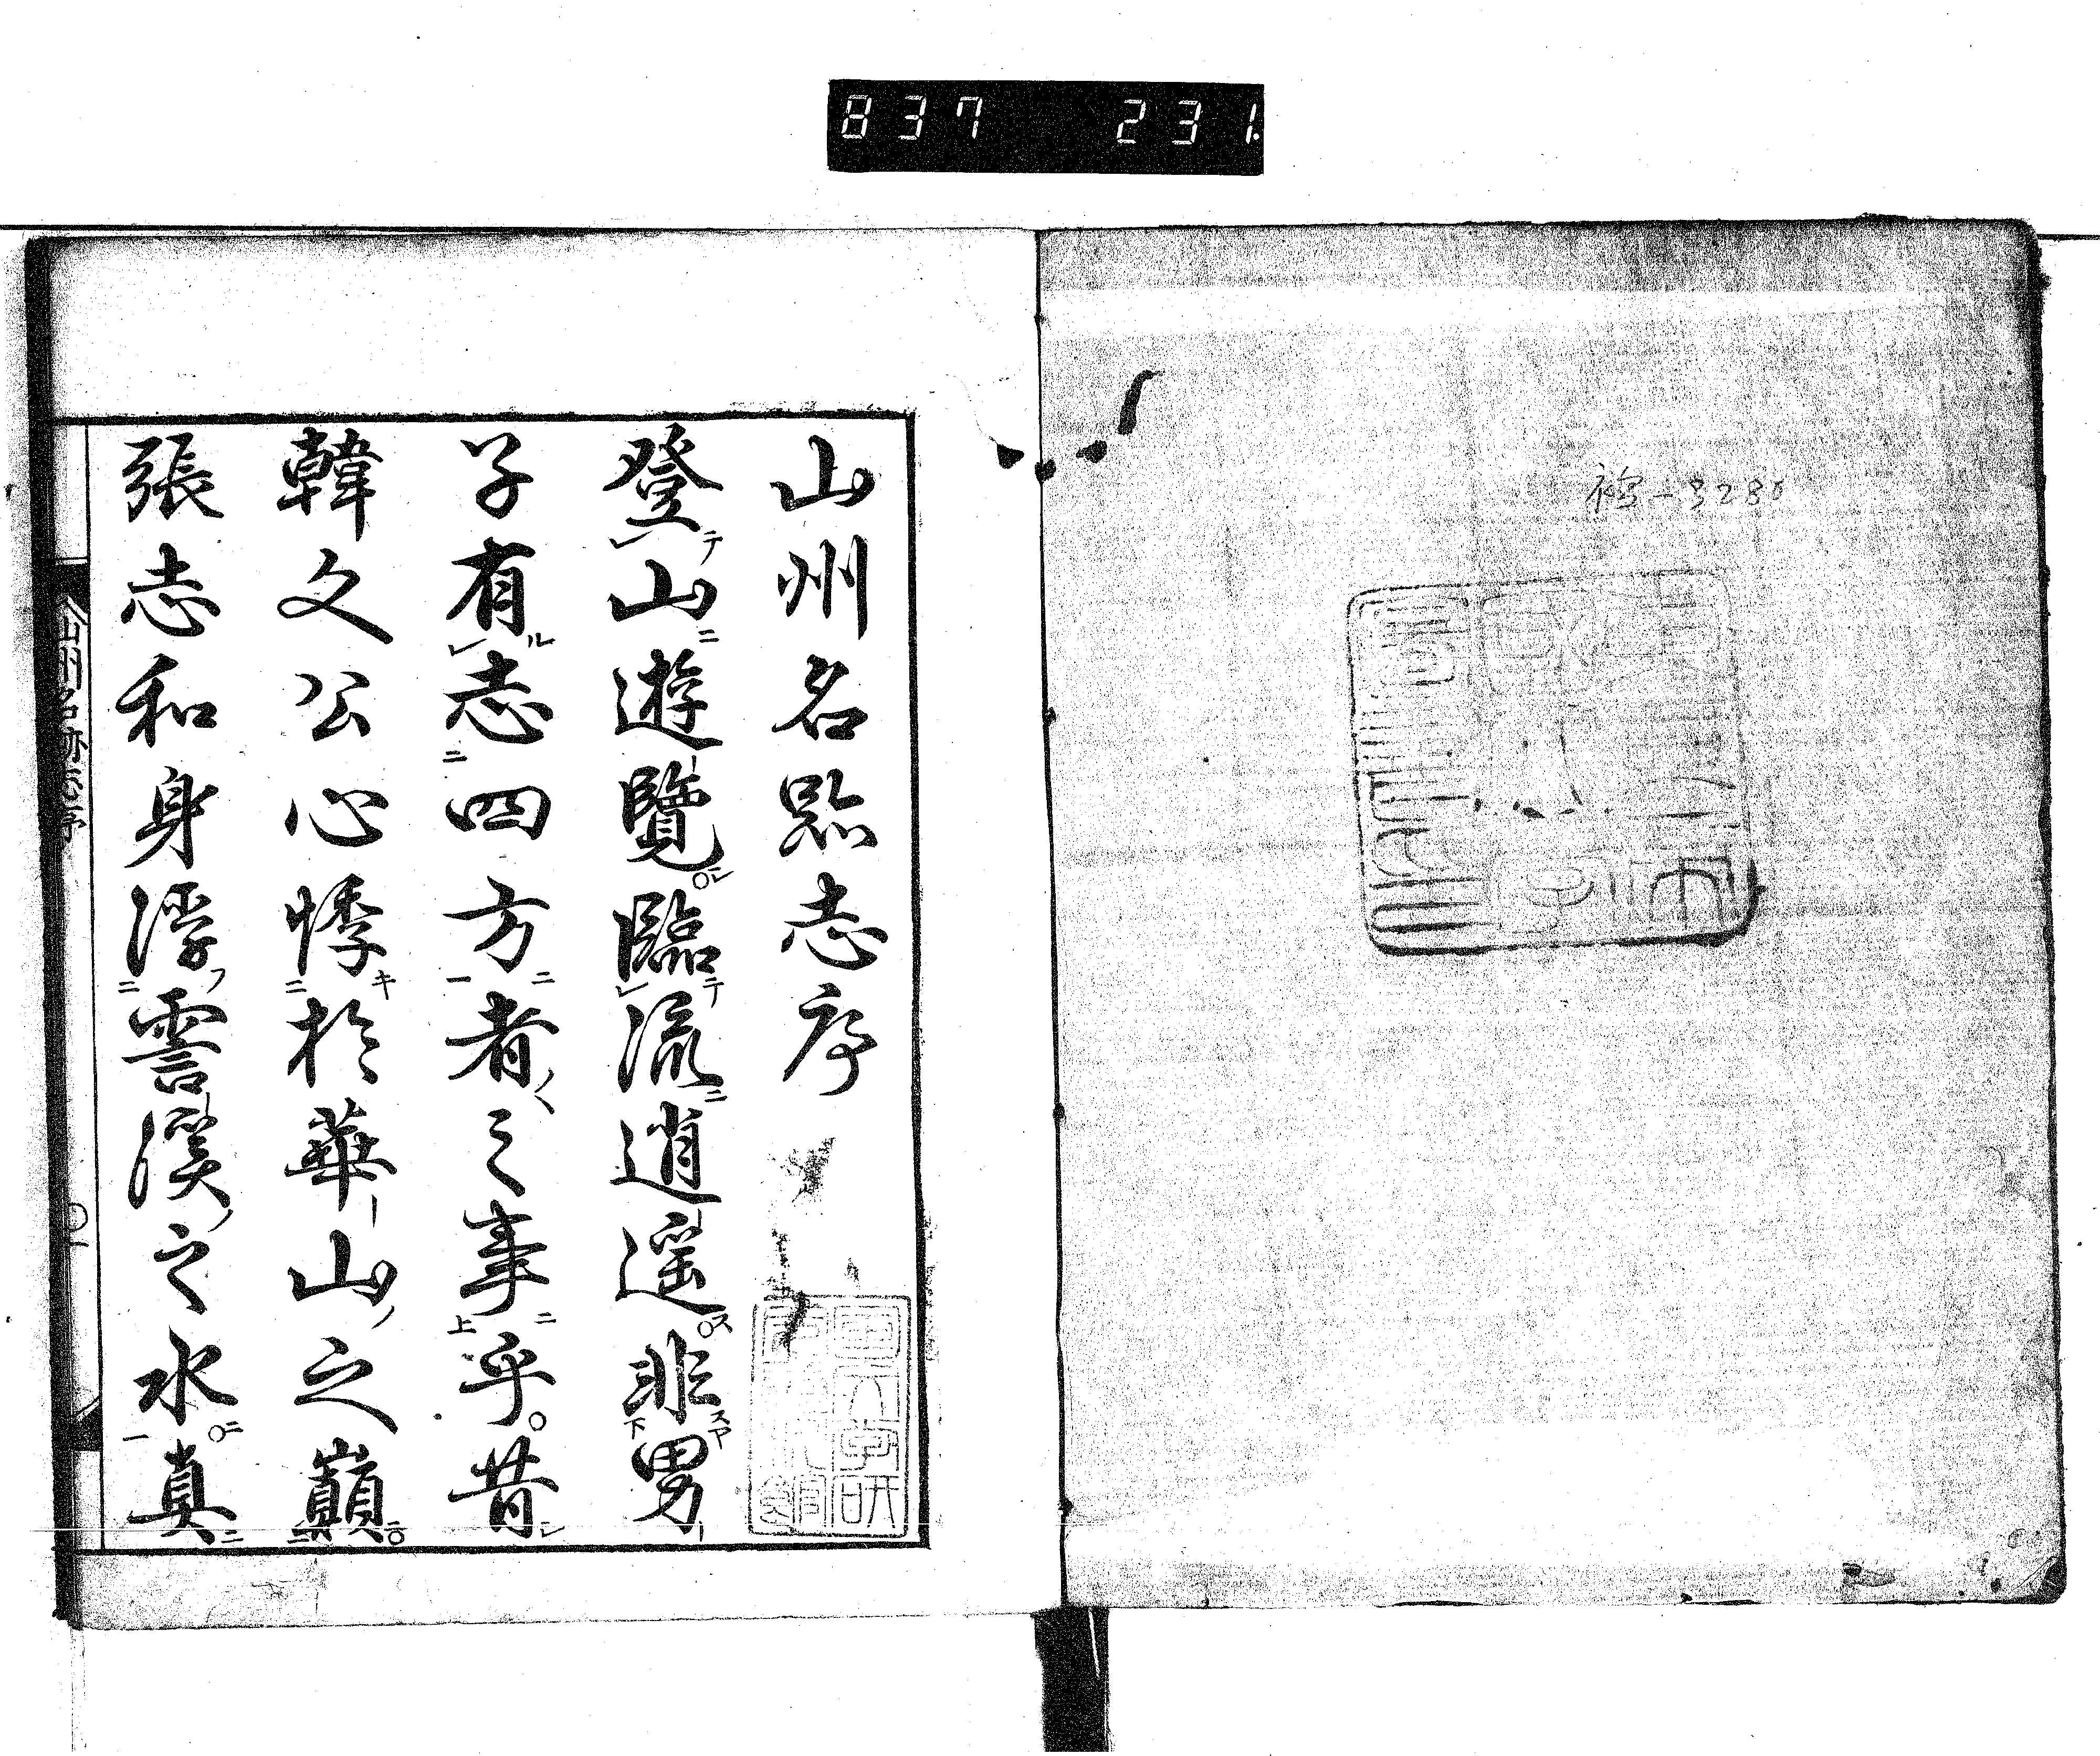 837 231
山州名跡志序
登山遊覽臨流逍遥非男
子有志四方者之事乎昔
韓文公心悸於華山之巔
張志和身浮霅溪之水真
山州名跡志序